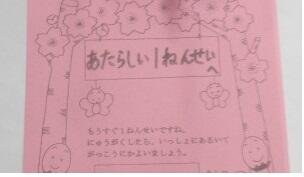 あたらしい1ねんせい
へ
もうすぐ1ねんせいですね。
にゅうがくしたら、いっしょにあるいて
がっこうにかよいましょう。